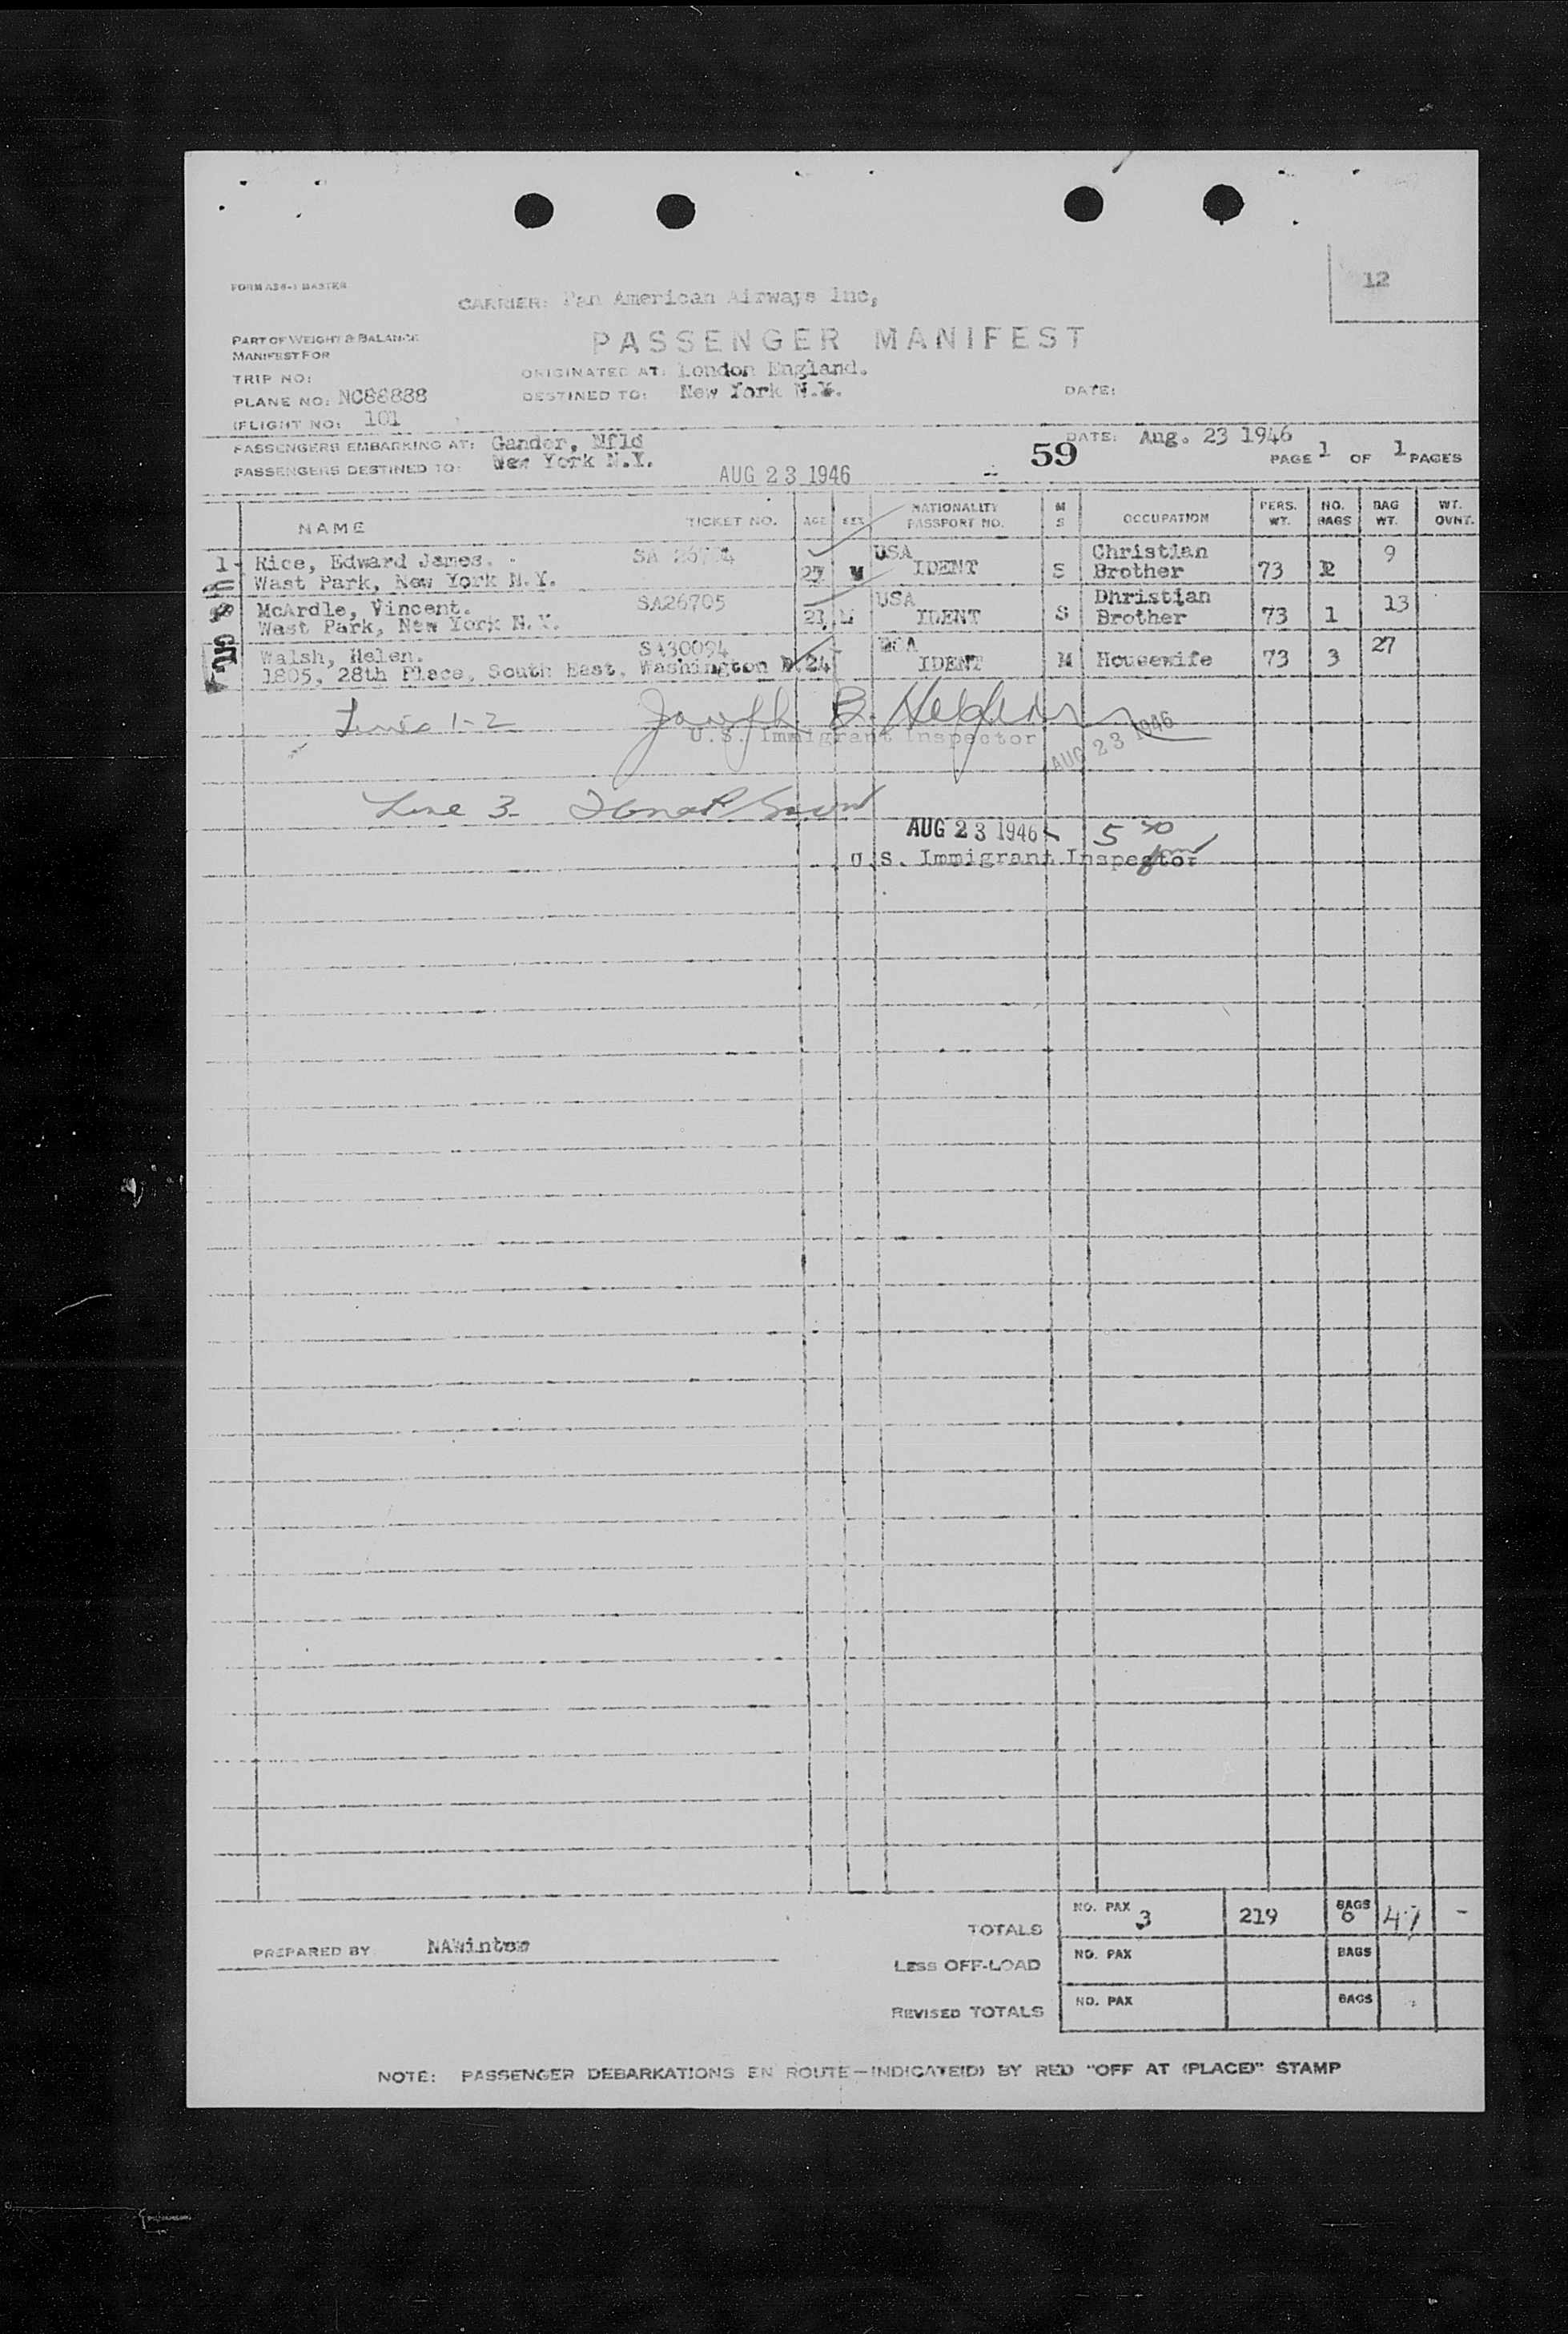 12
FORM A36-1 MASTER
CARRIER: Pan American Airways Inc,
PART OF WEIGHT & BALANCE
MANIFEST FOR
PASSENGER MANIFEST
TRIP NO:
ORIGINATED AT: London England.
PLANE NO: NC88888
DESTINED TO: New York N.Y.
DATE:
FLIGHT NO: 101
PASSENGERS EMBARKING AT: Gander, Nfld
59
DATE: Aug. 23 1946
PASSENGERS DESTINED TO: New York N.Y.
PAGE 1 OF 1 PAGES
AUG 23 1946
NAME TICKET NO. AGE SEX NATIONALITY PASSPORT NO. M S OCCUPATION PERS. WT. NO. BAGS BAG WT. WT. OVNT.
1 Rice, Edward James. SA USA Christian 9
Wast Park, New York N.Y. M IDENT S Brother 73
McArdle, Vincent. SA26705 USA Dhristian 13
Wast Park, New York N.Y. 21 M IDENT S Brother 73 1
Walsh, Helen. SA30094 USA 27
1805, 28th Place, South East, Washington D 24 IDENT M Housewife 73 3
Lines 1-2 Joseph B.
U.S. Immigrant Inspector
AUG 23 1946
Line 3
AUG 23 1946 5 30 pm
U.S. Immigrant Inspector
TOTALS NO. PAX 3 219 BAGS 6 47 -
PREPARED BY NAWinter
LESS OFF-LOAD NO. PAX BAGS
REVISED TOTALS NO. PAX BAGS
NOTE: PASSENGER DEBARKATIONS EN ROUTE—INDICATE(D) BY RED "OFF AT (PLACE)" STAMP